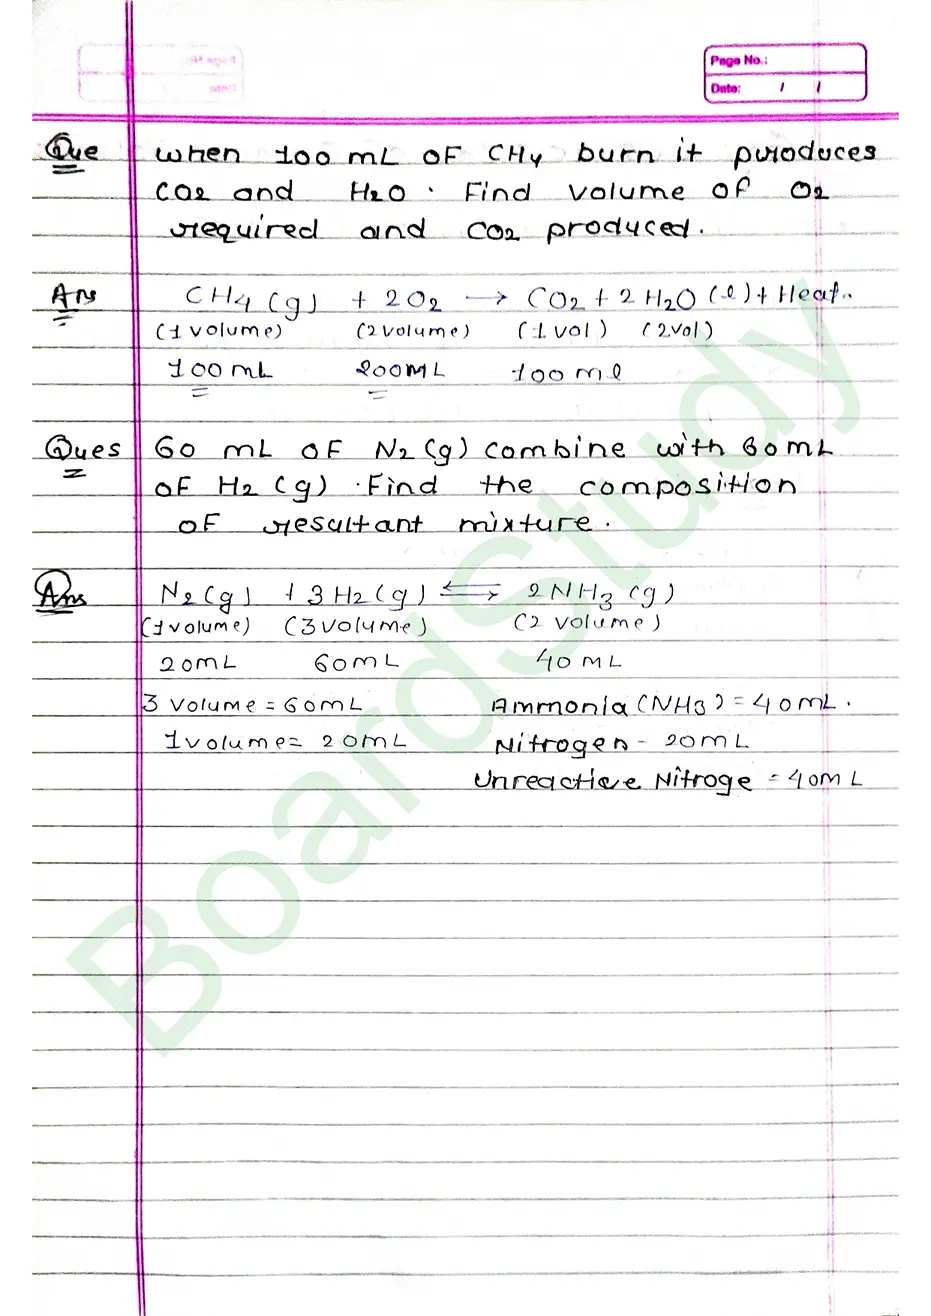 Page No.:
Date: / /
Que When 100 mL OF CH4 burn it produces
CO2 and H2O . Find volume of O2
required and CO2 produced.
Ans CH4 (g) + 2O2 → CO2 + 2H2O (l) + Heat..
(1 volume) (2 volume) (1 vol) (2 vol)
100 mL 200ML 100 ml
Ques 60 mL OF N2 (g) combine with 60 mL
OF H2 (g) . Find the composition
OF resultant mixture.
Ans N2 (g) + 3H2 (g) ⇌ 2NH3 (g)
(1 volume) (3 volume) (2 volume)
20mL 60mL 40 ML
3 Volume = 60mL Ammonia (NH3) = 40mL.
1 volume = 20mL Nitrogen - 20mL
Unreactive Nitroge = 40mL
BoardStudy